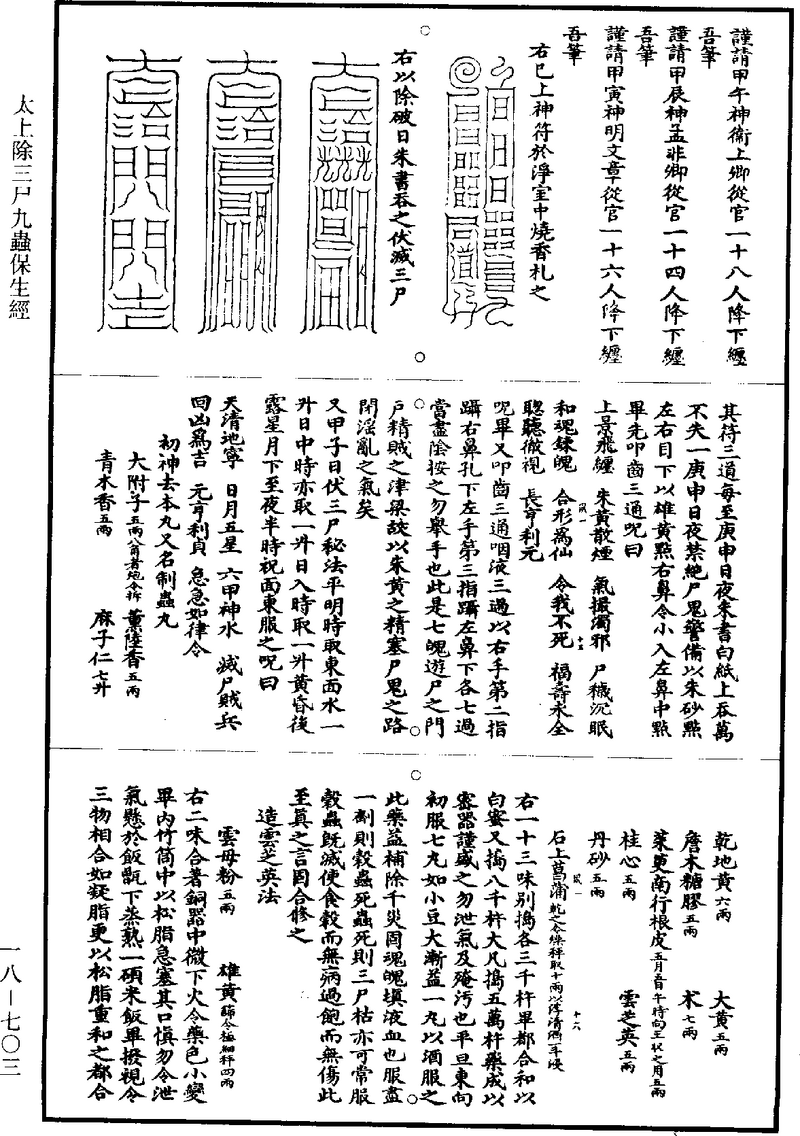 太上除三尸九蟲保生經
謹請甲午神衛上卿從官一十八人降下纏
吾筆
謹請甲辰神孟非卿從官一十四人降下纏
吾筆
謹請甲寅神明文章從官一十六人降下纏
吾筆
右已上神符於淨室中燒香札之
右以除破日朱書吞之伏滅三尸
其符三道每至庚申日夜朱書白紙上吞萬
不失一庚申日夜禁絕尸鬼警備以朱砂點
左右目下以雄黃點右鼻令小入左鼻中點
畢先叩齒三通呪曰
上景飛纏 朱黃散煙 氣攝濁邪 尸穢沉眠
和魂鍊魄 合形為仙 令我不死 福壽永全
聰聽徹視 長亨利元
呪畢又叩齒三通咽液三過以右手第二指
躡右鼻孔下左手第三指躡左鼻下各七過
當盡陰按之勿舉手也此是七魄遊尸之門
戶精賊之津梁故以朱黃之精塞尸鬼之路
閉淫亂之氣矣
又甲子日伏三尸秘法平明時取東面水一
升日中時亦取一升日入時取一升黃昏後
露星月下至夜半時祝面東服之呪曰
天清地寧 日月五星 六甲神水 滅尸賊兵
回凶為吉 元亨利貞 急急如律令
初神去本丸又名制蟲丸
大附子五兩八角者炮令拆 薰陸香五兩
青木香五兩 麻子仁七升
乾地黃六兩 大黃五兩
詹木糖膠五兩 朮七兩
茱萸南行根皮
桂心五兩 雲芝英五兩
丹砂五兩
石上菖蒲
右一十三味別搗各三千杵畢都合和以
白蜜又搗八千杵大凡搗五萬杵藥成以
密器謹盛之勿泄氣及殗污也平旦東向
初服七丸如小豆大漸益一丸以酒服之
此藥益補除千災固魂魄填液血也服盡
一劑則穀蟲死蟲死則三尸枯亦可常服
穀蟲既滅便食穀而無病過飽而無傷此
至真之言固合修之
造雲芝英法
雲母粉五兩 雄黃篩令極細秤四兩
右二味合著銅器中微下火令藥色小變
畢內竹筒中以松脂急塞其口慎勿令泄
氣懸於飯甑下蒸熟一碩米飯畢撥視令
三物相合如凝脂更以松脂重和之都合
一八—七〇三